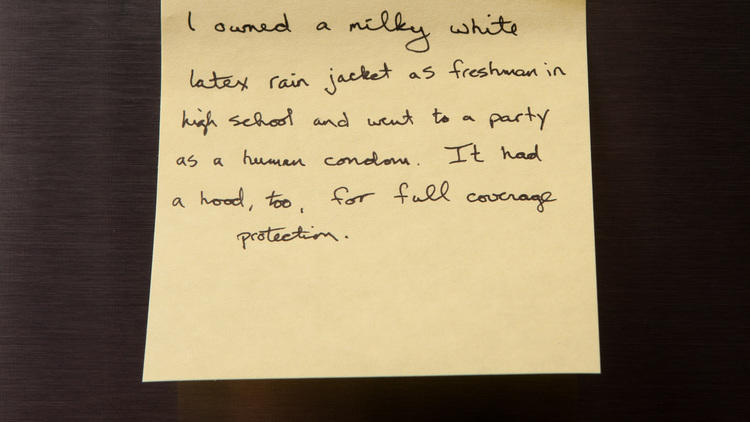 I owned a milky white
latex rain jacket as freshman in
high school and went to a party
as a human condom. It had
a hood, too, for full coverage
protection.